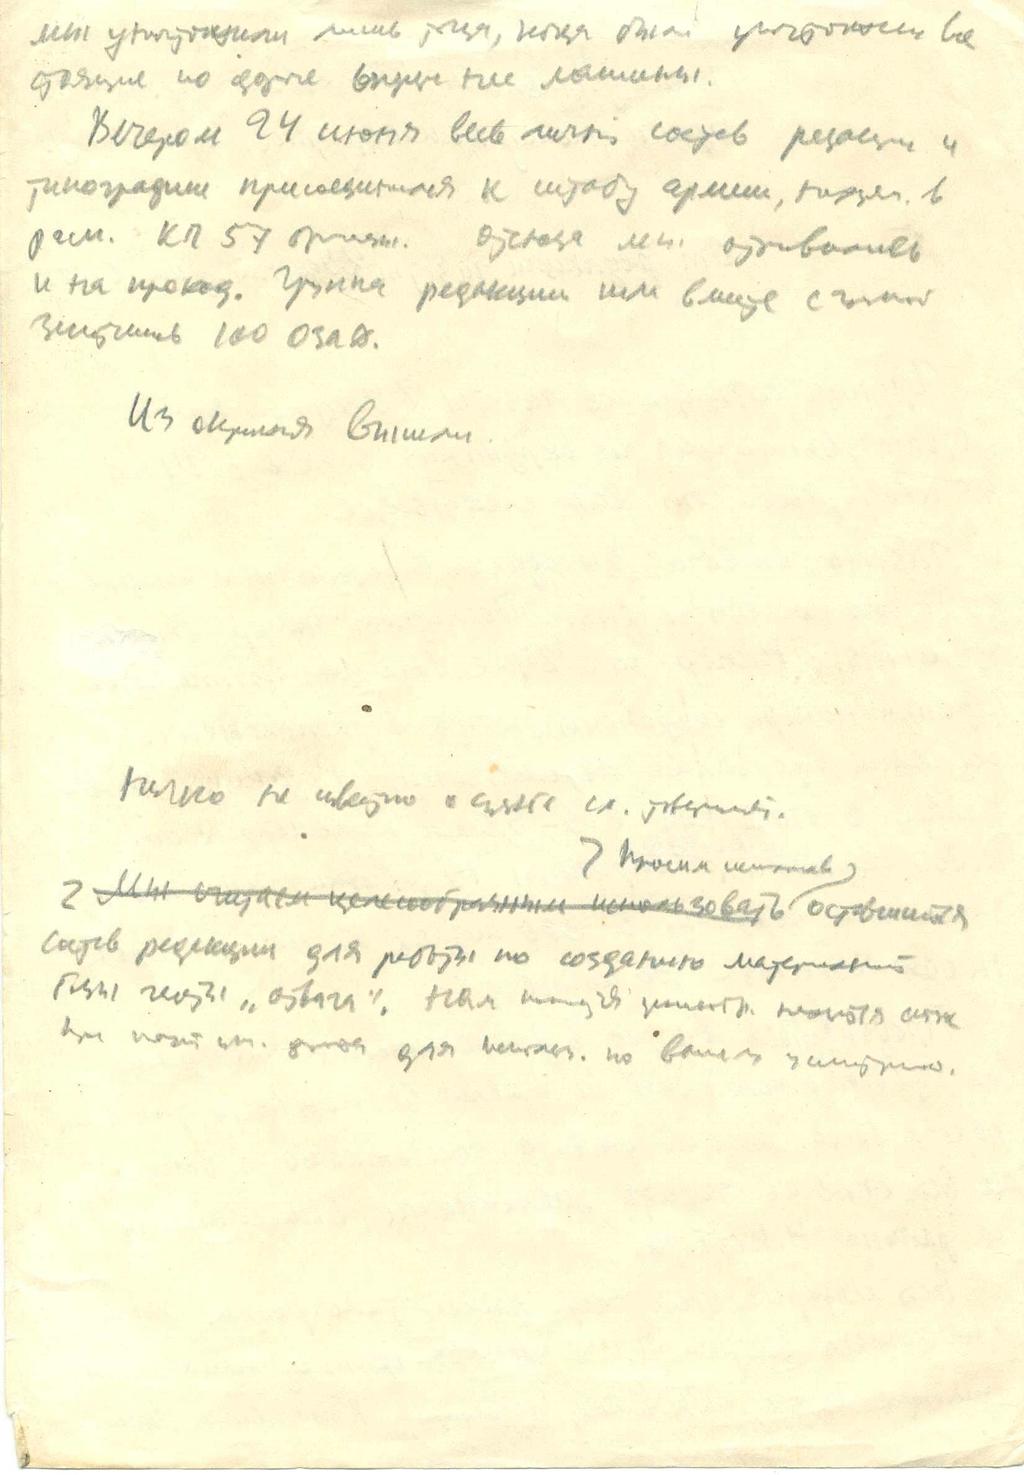 мы уничтожили лишь тогда, когда были уничтожены все
стоящие по дороге впереди нас машины.
Вечером 24 июня весь личный состав редакции и
типографии присоединился к штабу армии, наход. в
расп. КП 57 бригады. Отсюда мы отправились
и на проход. Группа редакции шла вместе с группой
100 ОЗАД.
Из окружения вышли
не известно о судьбе
Просим использов
Мы считаем целесообразным использовать оставшийся
состав редакции для работы по созданию материальной
базы газеты „Отвага“. находятся
для использ. по вашему усмотрению.